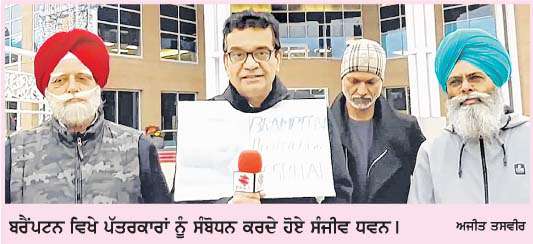 BRAMPTON
ਬਰੈਂਪਟਨ ਵਿਖੇ ਪੱਤਰਕਾਰਾਂ ਨੂੰ ਸੰਬੋਧਨ ਕਰਦੇ ਹੋਏ ਸੰਜੀਵ ਧਵਨ।
ਅਜੀਤ ਤਸਵੀਰ